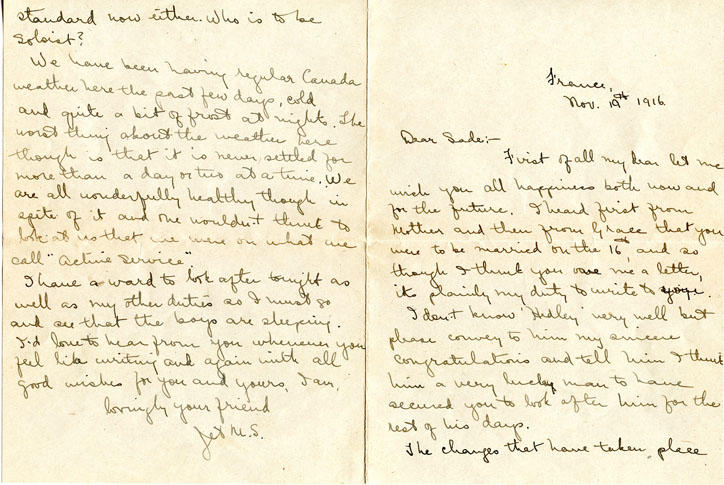 France,
Nov. 19th 1916
Dear Sade:-
First of all my dear let me
wish you all happiness both now and
for the future. I heard first from
Mother and then from Grace that you
were to be married on the 16th, and so
though I think you owe me a letter,
it's plainly my duty to write to
I don't know 'Hedley' very well but
please convey to him my sincere
congratulations and tell him I think
him a very lucky man to have
secured you to look after him for the
rest of his days.
The changes that have taken place
standard now either. Who is to be
soloist?
We have been having regular Canada
weather here the past few days, cold
and quite a bit of frost at nights. The
worst thing about the weather here
though is that it is never settled for
more than a day or two at a time. We
are all wonderfully healthy though in
spite of it and one wouldn't think to
look at us that we were on what we
call "Active Service"
I have a ward to look after tonight as
well as my other duties so I must go
and see that the boys are sleeping.
I'd love to hear from you whenever you
feel like writing and again with all
good wishes for you and yours, I am,
lovingly your friend
M.S.